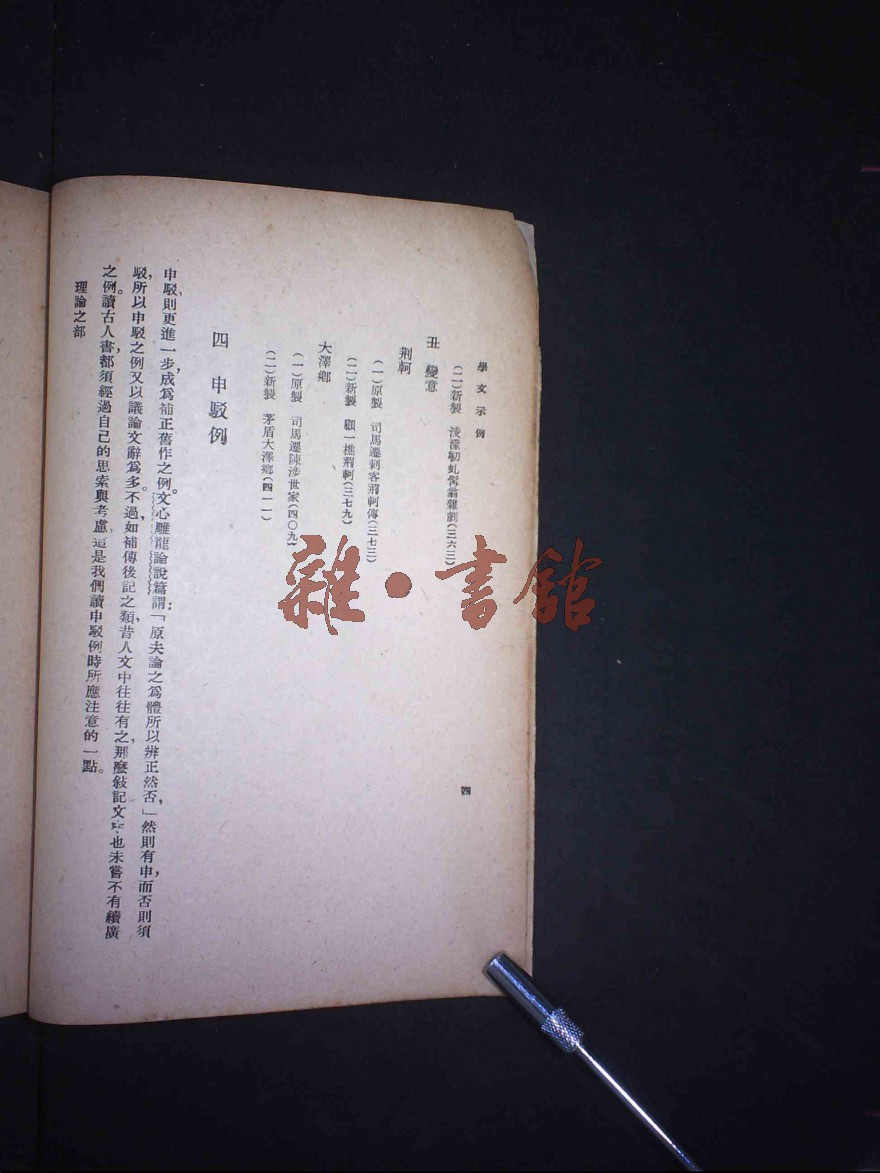 學文示例
四
(二)新製 淩濛初虬髯翁雜劇(三六三)
丑 變意
荆軻
(一)原製 司馬遷刺客荆軻傳(三七三)
(二)新製 顧一樵荆軻(三七九)
大澤鄉
(一)原製 司馬遷陳涉世家(四〇九)
(二)新製 茅盾大澤鄉(四一一)
四 申駁例
申駁、則更進一步,成爲補正舊作之例。文心雕龍論說篇謂:「原夫論之爲體所以辨正然否,」然則有申而否則須
駁,所以申駁之例又以議論文辭爲多。不過,如補傳後記之類,昔人文中往往有之,那麼敍記文字也未嘗不有續廣
之例。讀古人書,都須經過自己的思索與考慮,這是我們讀申駁例時所應注意的一點。
理論之部
雜·書館